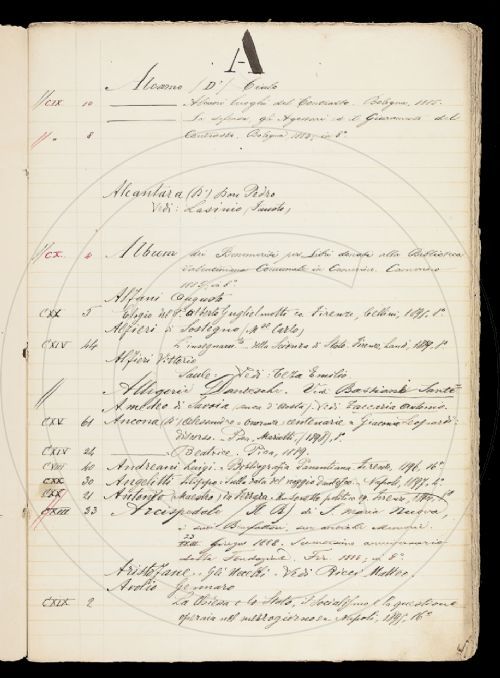 A
Alcamo (D') Ciullo
// CIX 10 Alcuni luoghi del Contrasto. Bologna, 1885.
La defensa, gli Agostari ed il Giuramento del
// " 8 Contrasto. Bologna 1885, in 8°
Alcantara (D') Don Pedro
Vedi: Lasinio, Fausto,
// CX. 4 Album dei Benemeriti per libri donati alla Biblioteca
Valentiniana Comunale in Camerino. Camerino
in 8°
Alfani Augusto
CXX 5 Elogio del P. Alberto Guglielmotti ec. Firenze, Cellini, 8°
Alfieri di Sostegno, M.se Carlo,
CXIV 44 L'insegnam.to della Scienza di Stato. Firenze, Landi, 8°
Alfieri Vittorio
Saul: Vedi: Teza Emilio
// Alligerie Dantesche. Vedi Bassiani Sante
Amedeo di Savoia (duca d'Aosta). Vedi
CXV 61 Ancona (D') Alessandro - Onoranze centenarie a Giacomo Leopardi:
discorso. Pisa, Mariotti (1898), 8°.
CXIV 24 Beatrice. Pisa, 1889.
40 Andreani Luigi - Bibliografia Firenze, 1896. 16°
CXX 30 Angelitti Filippo - Sulla data del viaggio Dantesco. Napoli, 1897. 4°
CXX 21 Antonio (Maestro) da Ferrara - politico ec. Firenze,
CXIII 33 Arcispedale (L') di S. Maria Nuova,
i suoi Benefattori, sue antiche Memorie.
23 Giugno 1888. Seicentesimo anniversario
dalla Fondazione. Fir. 1888, in 8°
Aristofane - Gli Uccelli - Vedi Ricci Matteo.
Avolio Gennaro
CXIX 2 La Chiesa e lo Stato, i Socialismo e la questione
operaia nel mezzogiorno ec. Napoli, 1895, 16°